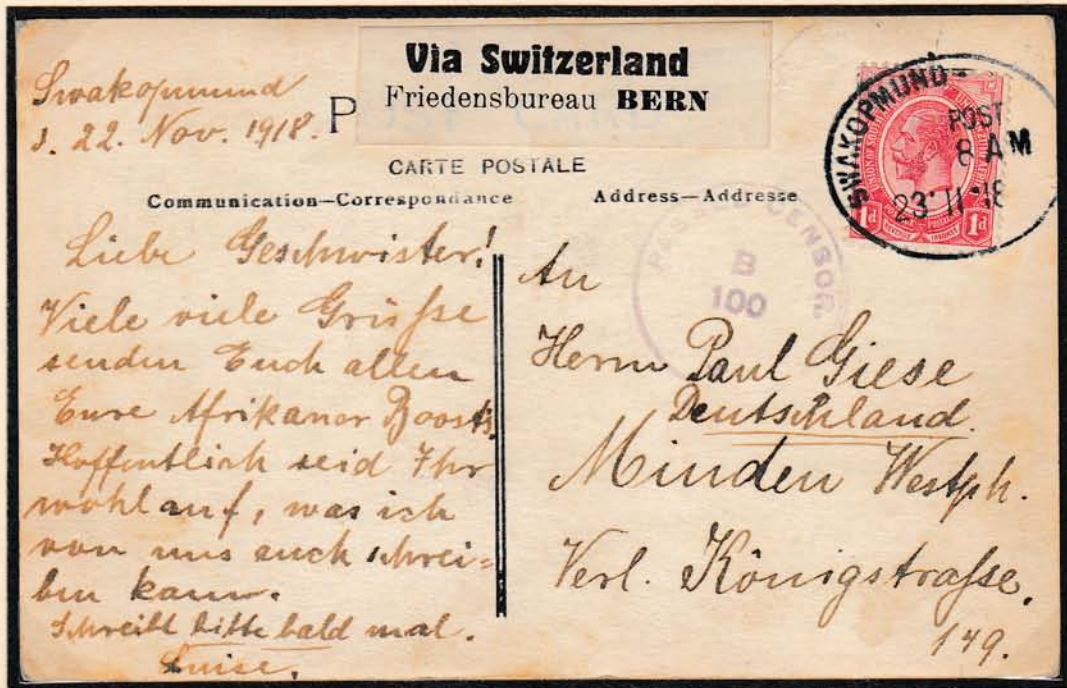 Via Switzerland
Friedensbureau BERN
P
CARTE POSTALE
Communication—Correspondance
Address—Addresse
SWAKOPMUND
POST
8 AM
23 11 18
1d
1d
CENSOR
B
100
Swakopmund
d. 22. Nov. 1918.
Liebe Geschwister!
Viele viele Grüße
senden Euch allen
Eure Afrikaner Boosts.
Hoffentlich seid Ihr
wohlauf, was ich
von uns auch schrei=
ben kann.
Schreibt bitte bald mal.
Luise.
An
Herrn Paul Giese
Deutschland.
Minden Westph.
Verl. Königstraße.
149.